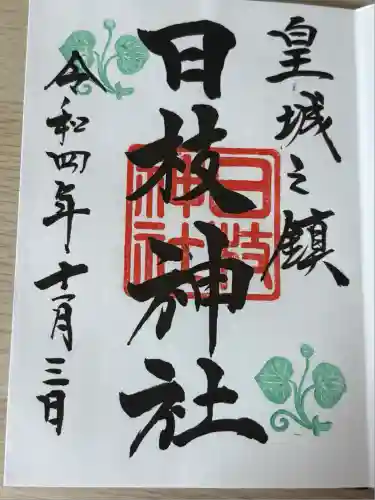 皇城之鎮
日枝神社
日枝
神社
令和四年十一月三日